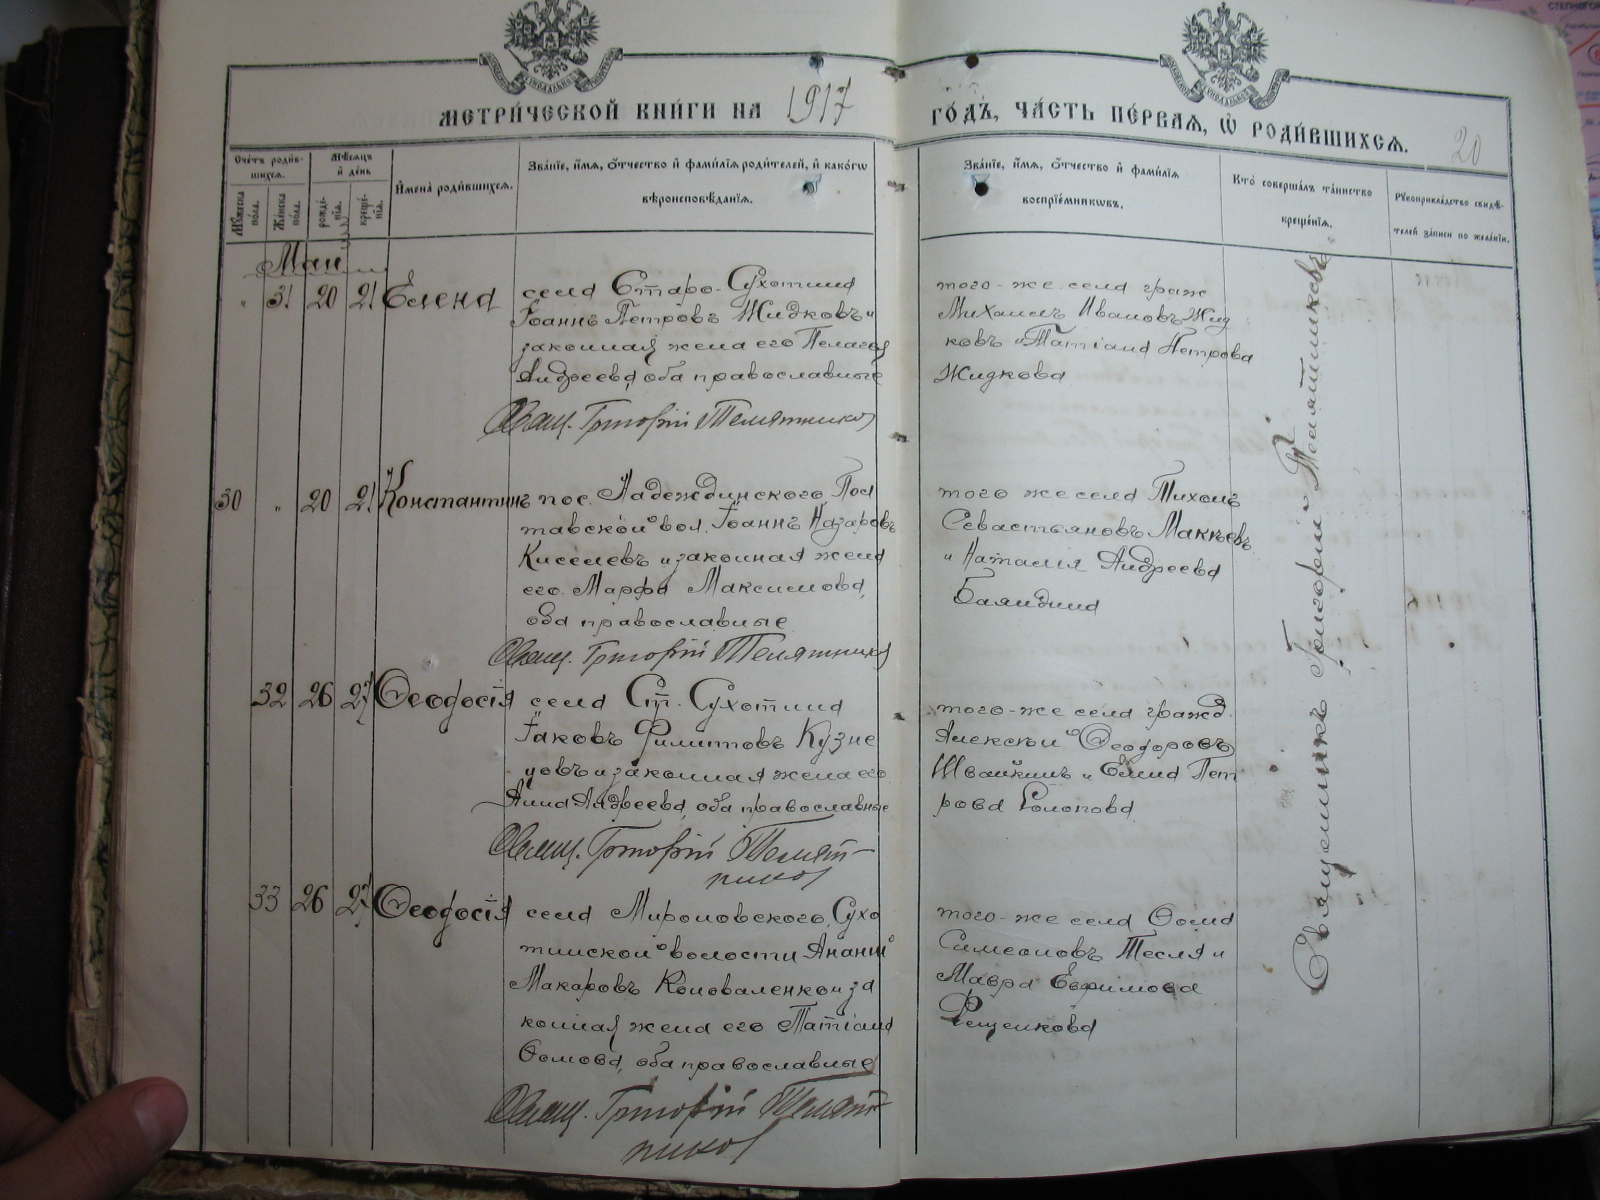 МЕТРИ́ЧЕСКОЙ КНИ́ГИ НА 1917 ГО́ДЪ, ЧА́СТЬ ПЕ́РВАЯ, Ѡ҆ РОДИ́ВШИХСЯ.
20
Сче́тъ роди́в-
шихся.
Мѣ́сяцъ
и҆ де́нь
И҆мена̀ роди́вшихся.
Зва́нїе, и҆́мя, ѻ҆́тчество и҆ фами́лїя роди́телей, и҆ како́гѡ
вѣроисповѣ́данїя.
Зва́нїе, и҆́мя, ѻ҆́тчество и҆ фами́лїя
воспрїе́мникѡвъ.
Кто̀ соверша́лъ та́инство
креще́нїя.
Рꙋкоприкла́дство свидѣ́-
телей за́писи по жела́нїи.
Мꙋ́жеска
по́ла.
Же́нска
по́ла.
рожде́-
нїя.
креще́-
нїя.
Май
" 31 20 21 Елена
села Старо-Сухотина
Іоаннъ Петровъ Жидковъ и
законная жена его Пелагея
Андреева, оба православные
Свящ. Григорій Телятников
того-же села граж
Михаилъ Ивановъ Жид
ковъ и Татіана Петрова
Жидкова
30 " 20 21 Константинъ
пос. Надеждинского, Пол
тавской вол. Іоаннъ Назаровъ
Киселевъ и законная жена
его Марфа Максимова,
оба православные
Свящ. Григорій Телятников
того же села Тихонъ
Севастьяновъ Макѣевъ
и Наталія Андреева
Баяндина
32 26 27 Ѳеодосія
села Ст. Сухотина
Іаковъ Филипповъ Кузне
цовъ и законная жена его
Анна Андреева, оба православные
Свящ. Григорій Телят-
ников
того-же села гражд.
Алексѣй Ѳеодоровъ
Швайкинъ и Елена Пет
рова Солопова
33 26 27 Ѳеодосія
села Мироновского, Сухо
тинской волости Ананій
Макаровъ Коноваленко и за
конная жена его Татіана
Ѳомова, оба православные
Свящ. Григорій Телят-
ников
того-же села Ѳома
Симеоновъ Тесля и
Мавра Евфимова
Рещенкова
Священникъ Григорій Телятниковъ